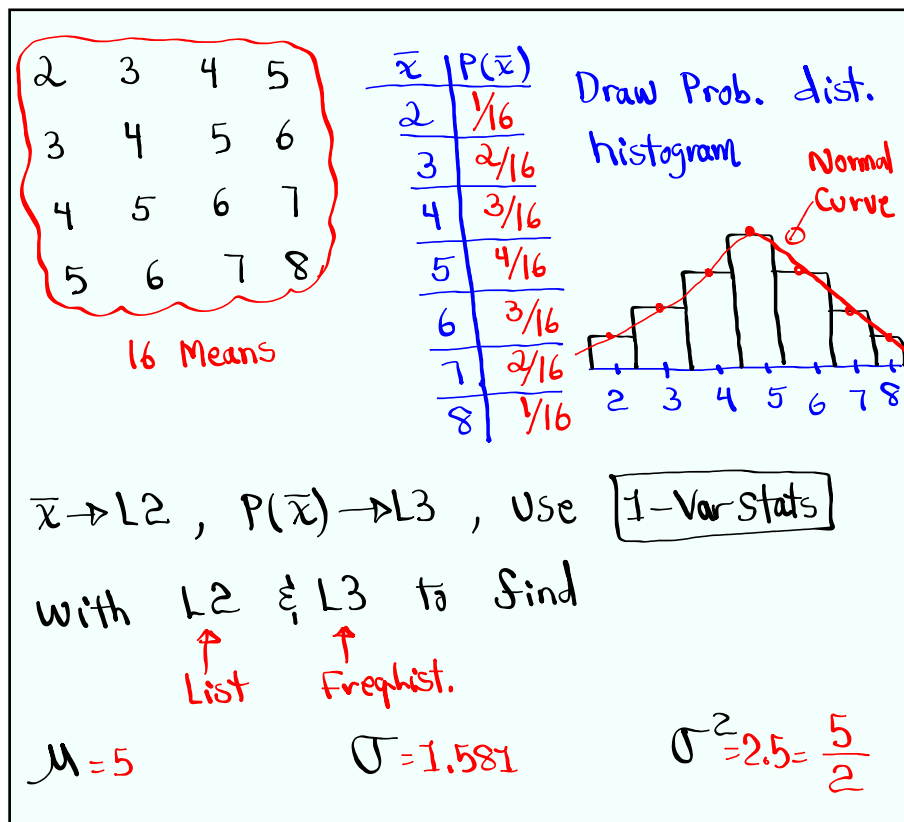 2 3 4 5
3 4 5 6
4 5 6 7
5 6 7 8
16 Means
x̄ P(x̄)
2 1/16
3 2/16
4 3/16
5 4/16
6 3/16
7 2/16
8 1/16
Draw Prob. dist.
histogram
Normal
Curve
2 3 4 5 6 7 8
x̄→L2, P(x̄)→L3, Use 1-Var Stats
with L2 & L3 to find
List Freqlist.
μ=5 σ=1.581 σ²=2.5=5/2